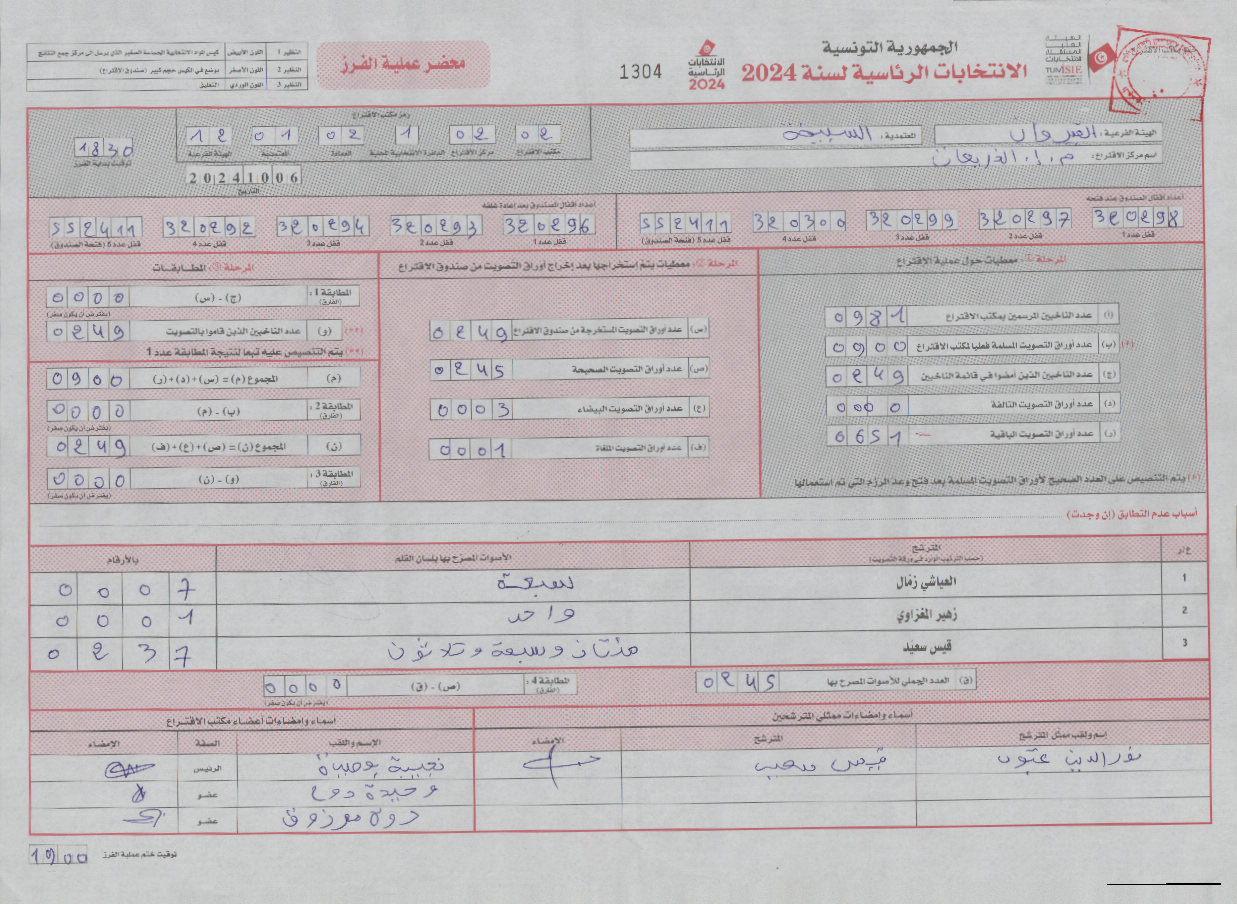 الجمهورية التونسية
الانتخابات الرئاسية لسنة 2024
الهيئة العليا المستقلة للانتخابات
TUNISIE
الانتخابات الرئاسية 2024
1304
محضر عملية الفرز
النظير 1 اللون الأبيض كيس المواد الانتخابية الحساسة الصغير الذي يرسل الى مركز جمع النتائج
النظير 2 اللون الأصفر يوضع في الكيس حجم كبير (صندوق الاقتراع)
النظير 3 اللون الوردي التعليق
الهيئة الفرعية: القيروان المعتمدية: السبيخة
اسم مركز الاقتراع: م.إ. الذريعات
رمز مكتب الاقتراع
02 02 1 02 01 12
مكتب الاقتراع مركز الاقتراع الدائرة الانتخابية المحلية العمادة المعتمدية الهيئة الفرعية
20241006
التاريخ
1830
توقيت بداية الفرز
أعداد أقفال الصندوق عند فتحه
320298 320297 320299 320300 552411
قفل عدد 1 قفل عدد 2 قفل عدد 3 قفل عدد 4 قفل عدد 5 (فتحة الصندوق)
أعداد أقفال الصندوق بعد إعادة غلقه
320296 320293 320294 320292 552411
قفل عدد 1 قفل عدد 2 قفل عدد 3 قفل عدد 4 قفل عدد 5 (فتحة الصندوق)
المرحلة ①: معطيات حول عملية الاقتراع
(أ) عدد الناخبين المرسمين بمكتب الاقتراع 0981
(*) (ب) عدد أوراق التصويت المسلمة فعليا لمكتب الاقتراع 0900
(ج) عدد الناخبين الذين أمضوا في قائمة الناخبين 0249
(د) عدد أوراق التصويت التالفة 0000
(ر) عدد أوراق التصويت الباقية 0651
(*) يتم التنصيص على العدد الصحيح لأوراق التصويت المسلمة بعد فتح وعد الرزم التي تم استعمالها
المرحلة ②: معطيات يتم استخراجها بعد إخراج أوراق التصويت من صندوق الاقتراع
(س) عدد أوراق التصويت المستخرجة من صندوق الاقتراع 0249
(ص) عدد أوراق التصويت الصحيحة 0245
(ع) عدد أوراق التصويت البيضاء 0003
(ف) عدد أوراق التصويت الملغاة 0001
المرحلة ③: المطابقات
المطابقة 1: (الفارق) (ج) - (س) 0000
(يفترض أن يكون صفر)
(**) (و) عدد الناخبين الذين قاموا بالتصويت 0249
(**) يتم التنصيص عليه تبعا لنتيجة المطابقة عدد 1
(م) المجموع (م) = (س) + (د) + (ر) 0900
المطابقة 2: (الفارق) (ب) - (م) 0000
(يفترض أن يكون صفر)
(ن) المجموع (ن) = (ص) + (ع) + (ف) 0249
المطابقة 3: (الفارق) (و) - (ن) 0000
(يفترض أن يكون صفر)
أسباب عدم التطابق (إن وجدت)
ع/ر المترشح (حسب الترتيب الوارد في ورقة التصويت) الأصوات المصرح بها بلسان القلم بالأرقام
1 العياشي زمال سبعة 0007
2 زهير المغزاوي واحد 0001
3 قيس سعيّد مئتان وسبعة وثلاثون 0237
(ق) العدد الجملي للأصوات المصرح بها 0245
المطابقة 4: (الفارق) (ص) - (ق) 0000
(يفترض أن يكون صفر)
أسماء وإمضاءات ممثلي المترشحين
إسم ولقب ممثل المترشح المترشح الإمضاء
نور الدين عتون قيس سعيد
أسماء وإمضاءات أعضاء مكتب الاقتراع
الإسم واللقب الصفة الإمضاء
نجيبة الرئيس
وحيدة عضو
مرزوق عضو
توقيت ختم عملية الفرز 1900